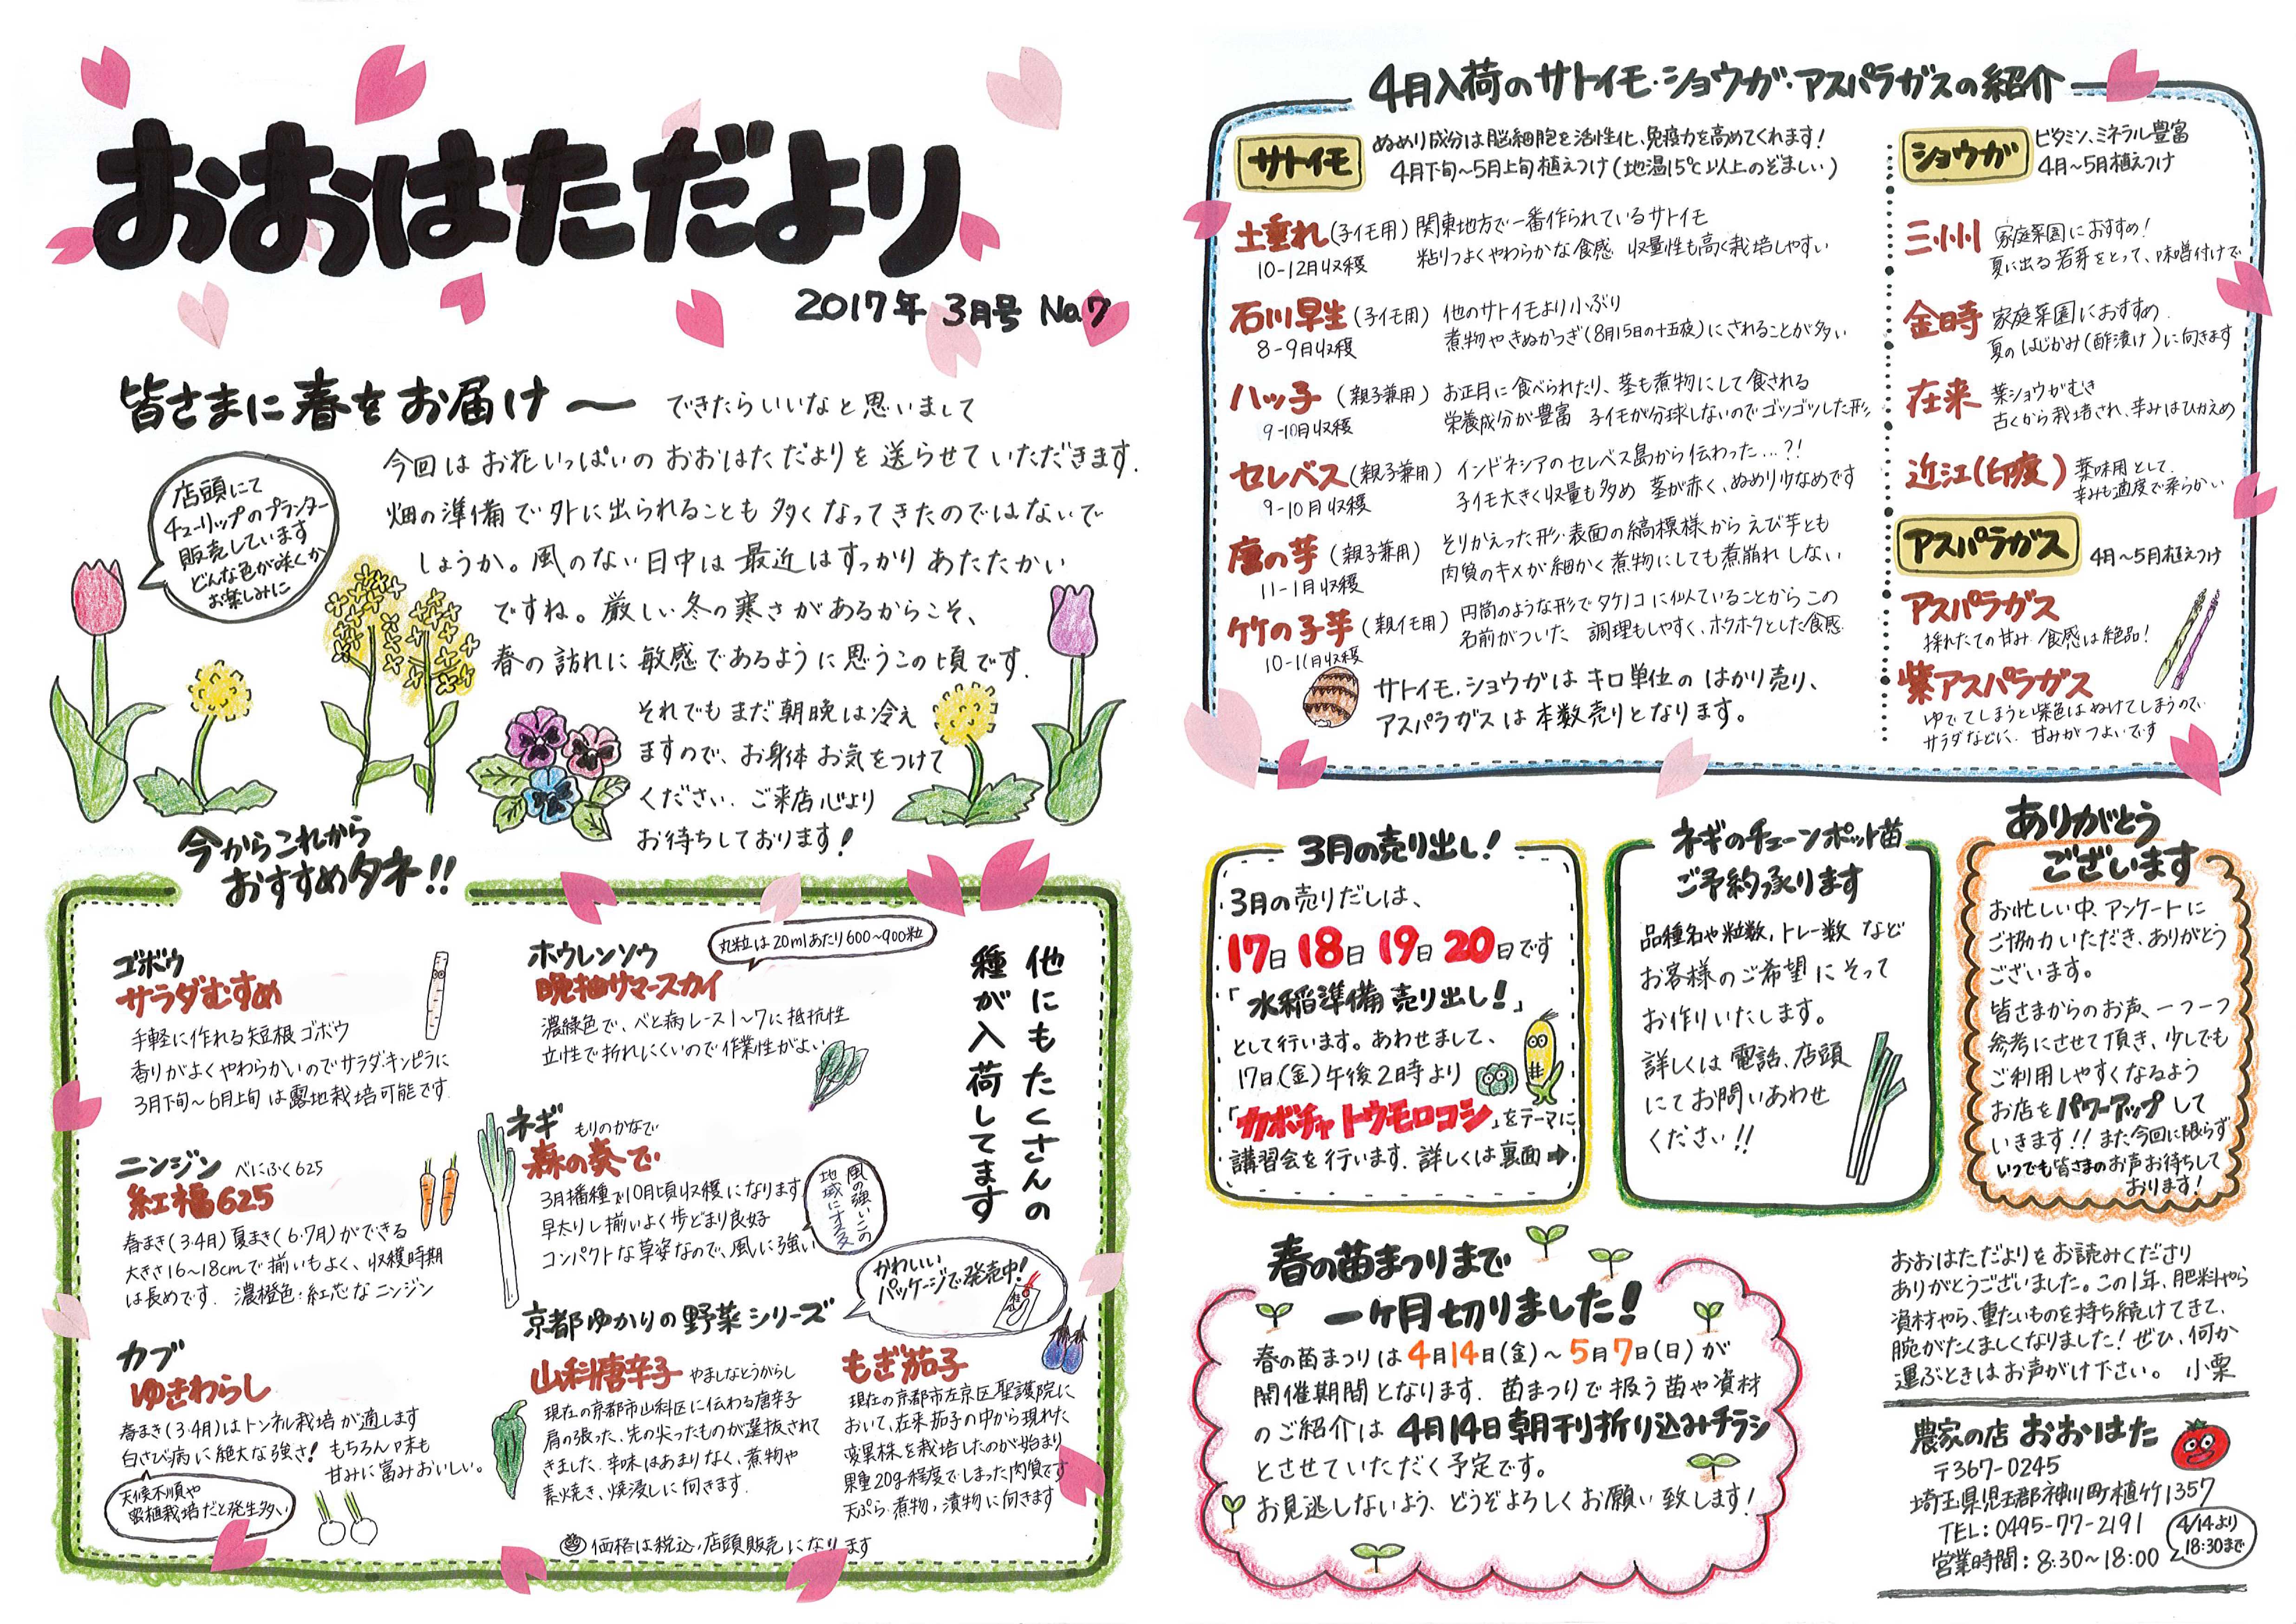 おおはただより
2017年 3月号 No.7
皆さまに春をお届け〜 できたらいいなと思いまして
今回はお花いっぱいのおおはただよりを送らせていただきます.
畑の準備で外に出られることも多くなってきたのではないで
しょうか。風のない日中は最近はすっかりあたたかい
ですね。厳しい冬の寒さがあるからこそ、
春の訪れに敏感であるように思うこの頃です.
それでもまだ朝晩は冷え
ますので、お身体お気をつけて
ください. ご来店心より
お待ちしております!
店頭にて
チューリップのプランター
販売しています
どんな色が咲くか
お楽しみに
今からこれから
おすすめタネ!!
ゴボウ
サラダむすめ
手軽に作れる短根ゴボウ
香りがよくやわらかいのでサラダ・キンピラに
3月下旬〜6月上旬は露地栽培可能です.
ニンジン べにふく625
紅福625
春まき(3・4月)夏まき(6・7月)ができる
大きさ16〜18cmで揃いもよく、収穫時期
は長めです. 濃橙色・紅芯なニンジン
カブ
ゆきわらし
春まき(3・4月)はトンネル栽培が適します
白さび病に絶大な強さ! もちろん味も
甘みに富みおいしい。
天候不順や
密植栽培だと発生多い
ホウレンソウ
丸粒は20mlあたり600〜900粒
晩抽サマースカイ
濃緑色で、べと病レース1〜7に抵抗性
立性で折れにくいので作業性がよい
ネギ もりのかなで
森の奏で
3月播種で10月頃収穫になります
早太りし揃いよく歩どまり良好
コンパクトな草姿なので、風に強い
風の強いこの
地域にすすめ
京都ゆかりの野菜シリーズ
かわいい
パッケージで発売中!
山科唐辛子 やましなとうがらし
現在の京都市山科区に伝わる唐辛子
肩の張った、先の尖ったものが選抜されて
きました. 辛味はあまりなく、煮物や
素焼き、焼浸しに向きます.
もぎ茄子
現在の京都市左京区聖護院に
おいて、在来茄子の中から現れた
変異株を栽培したのが始まり
果重20g程度でしまった肉質です
天ぷら・煮物・漬物に向きます
他にもたくさんの
種が入荷してます
価格は税込・店頭販売になります
4月入荷のサトイモ・ショウガ・アスパラガスの紹介
サトイモ
ぬめり成分は脳細胞を活性化、免疫力を高めてくれます!
4月下旬〜5月上旬植えつけ(地温15℃以上のぞましい)
土垂れ(子イモ用) 関東地方で一番作られているサトイモ
10-12月収穫 粘りつよくやわらかな食感 収量性も高く栽培しやすい
石川早生(子イモ用) 他のサトイモより小ぶり
8-9月収穫 煮物やきぬかつぎ(8月15日の十五夜)にされることが多い
八ッ子(親子兼用) お正月に食べられたり、茎も煮物にして食される
9-10月収穫 栄養成分が豊富 子イモが分球しないのでゴツゴツした形
セレベス(親子兼用) インドネシアのセレベス島から伝わった...?!
9-10月収穫 子イモ大きく収量も多め 茎が赤く、ぬめり少なめです
唐の芋(親子兼用) そりかえった形・表面の縞模様からえび芋とも
11-1月収穫 肉質のキメが細かく煮物にしても煮崩れしない
竹の子芋(親イモ用) 円筒のような形でタケノコに似ていることからこの
10-11月収穫 名前がついた 調理もしやすく、ホクホクとした食感
サトイモ、ショウガはキロ単位のはかり売り、
アスパラガスは本数売りとなります。
ショウガ
ビタミン、ミネラル豊富
4月〜5月植えつけ
三州 家庭菜園におすすめ!
夏に出る若芽をとって、味噌付けで
金時 家庭菜園におすすめ.
夏のはじかみ(酢漬け)に向きます
在来 葉ショウガむき
古くから栽培され、辛みはひかえめ
近江(印度) 薬味用として.
辛みも適度で柔らかい
アスパラガス 4月〜5月植えつけ
アスパラガス
採れたての甘み・食感は絶品!
紫アスパラガス
ゆでてしまうと紫色はぬけてしまうので
サラダなどに. 甘みがつよいです
3月の売り出し!
3月の売りだしは、
17日 18日 19日 20日です
「水稲準備売り出し!」
として行います。あわせまして、
17日(金)午後2時より
「カボチャ トウモロコシ」をテーマに
講習会を行います. 詳しくは裏面➡
ネギのチェーンポット苗
ご予約承ります
品種名や粒数,トレー数など
お客様のご希望にそって
お作りいたします。
詳しくは電話、店頭
にてお問いあわせ
ください!!
ありがとう
ございます
お忙しい中、アンケートに
ご協力いただき、ありがとう
ございます。
皆さまからのお声、一つ一つ
参考にさせて頂き、少しでも
ご利用しやすくなるよう
お店をパワーアップして
いきます!! また今回に限らず
いつでも皆さまのお声お待ちして
おります!
春の苗まつりまで
一ヶ月切りました!
春の苗まつりは4月14日(金)〜5月7日(日)が
開催期間となります. 苗まつりで扱う苗や資材
のご紹介は4月14日朝刊折り込みチラシ
とさせていただく予定です。
お見逃しないよう、どうぞよろしくお願い致します!
おおはただよりをお読みくださり
ありがとうございました。この1年、肥料やら
資材やら、重たいものを持ち続けてきて、
腕がたくましくなりました! ぜひ、何か
運ぶときはお声がけ下さい。 小栗
農家の店 おおはた
〒367-0245
埼玉県児玉郡神川町植竹1357
TEL:0495-77-2191
営業時間:8:30〜18:00
4/14より
18:30まで